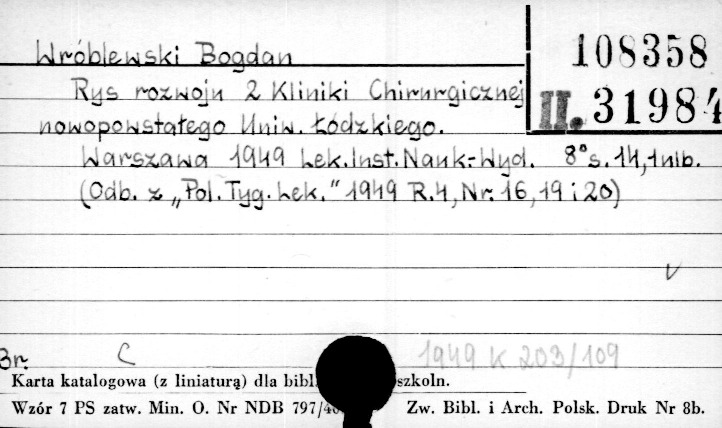 Wróblewski Bogdan
108358
Rys rozwoju 2 Kliniki Chirurgicznej
II. 31984
nowopowstałego Uniw. Łódzkiego.
Warszawa 1949 Lek. Inst. Nauk.-Wyd. 8° s. 14, 1 nlb.
(Odb. z „Pol. Tyg. Lek." 1949 R. 4, Nr. 16, 19 i 20)
Br. C 1949 K 203/109
Karta katalogowa (z liniaturą) dla szkoln.
Wzór 7 PS zatw. Min. O. Nr NDB Zw. Bibl. i Arch. Polsk. Druk Nr 8b.